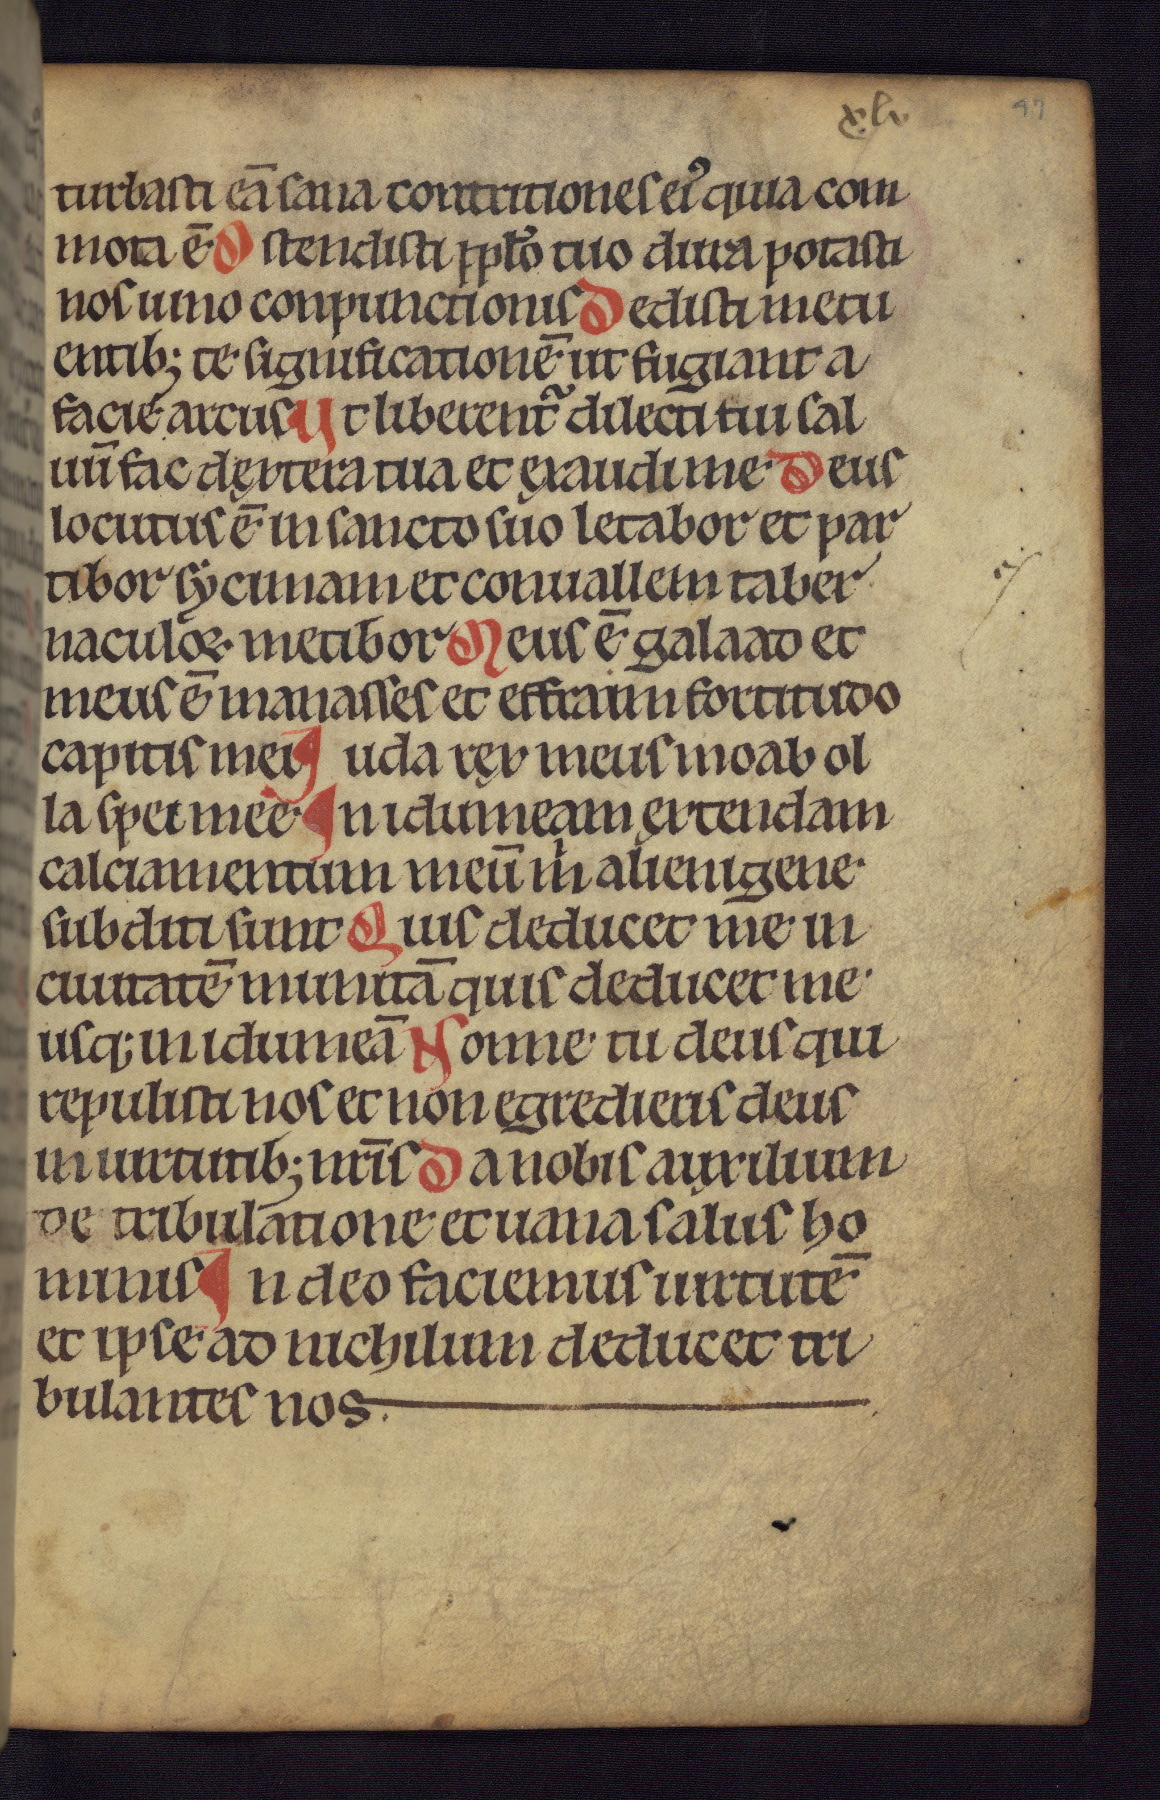 xlv 47
turbasti eā sana contritiones eiꝰ quia com
mota ē Ostendisti pplo tuo dura potasti
nos uino conpunctionis Dedisti metu
entib; te significationē ut fugiant a
facie arcus Ut liberent᷑ dilecti tui sal
uū fac dextera tua et exaudi me Deus
locutus ē in sancto suo letabor et par
tibor sẏcimam et conuallem taber
naculoꝝ metibor Meus ē galaad et
meus ē manasses et effraim fortitudo
capitis mei Iuda rex meus moab ol
la spei mee In idumeam extendam
calciamentum meū m̍ alienigene
subditi sunt Quis deducet me in
ciuitatē munitā quis deducet me
usq; in idumeā Nonne tu deus qui
repulisti nos et non egredieris deus
in uirtutib; nr̄is Da nobis auxilium
de tribulatione et uana salus ho
minis In deo faciemus uirtutē
et ipse ad nichilum deducet tri
bulantes nos.